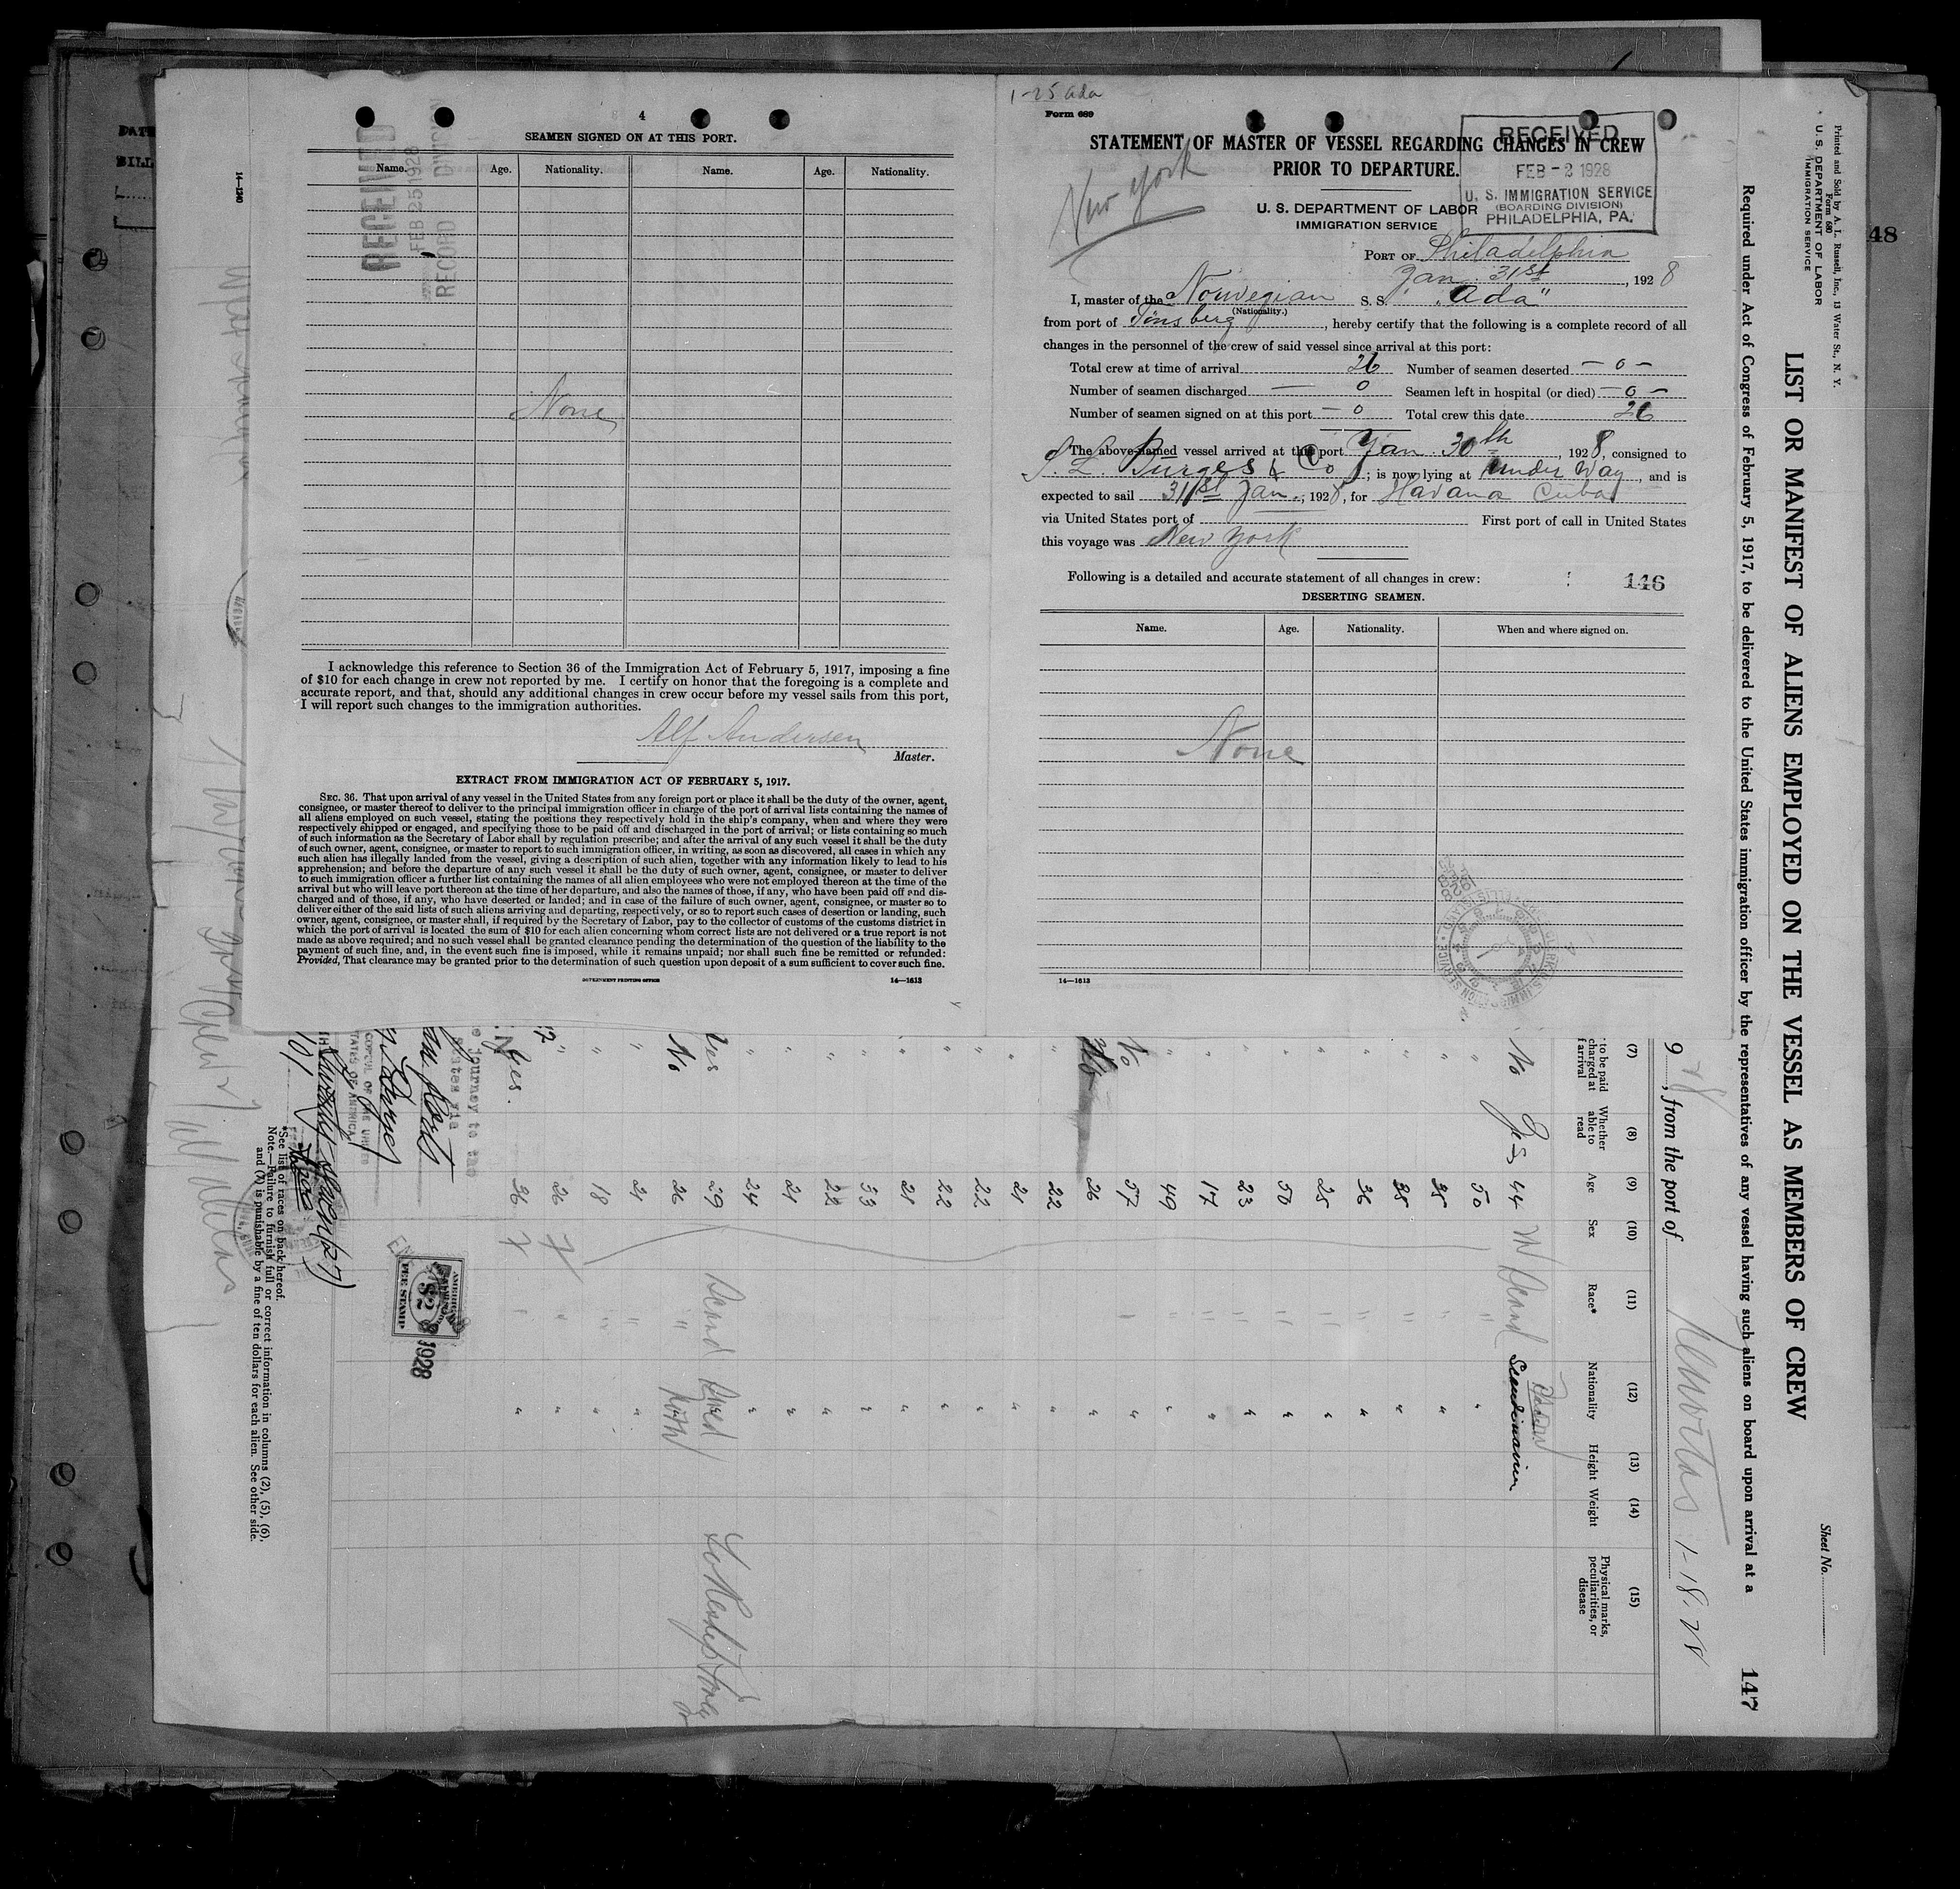 1-25 Ada
4
SEAMEN SIGNED ON AT THIS PORT.
Name. Age. Nationality. Name. Age. Nationality.
RECEIVED
FEB 25 1928
RECORD DIVISION
14—1240
None
I acknowledge this reference to Section 36 of the Immigration Act of February 5, 1917, imposing a fine
of $10 for each change in crew not reported by me. I certify on honor that the foregoing is a complete and
accurate report, and that, should any additional changes in crew occur before my vessel sails from this port,
I will report such changes to the immigration authorities.
Alf Andersen
Master.
EXTRACT FROM IMMIGRATION ACT OF FEBRUARY 5, 1917.
SEC. 36. That upon arrival of any vessel in the United States from any foreign port or place it shall be the duty of the owner, agent,
consignee, or master thereof to deliver to the principal immigration officer in charge of the port of arrival lists containing the names of
all aliens employed on such vessel, stating the positions they respectively hold in the ship's company, when and where they were
respectively shipped or engaged, and specifying those to be paid off and discharged in the port of arrival; or lists containing so much
of such information as the Secretary of Labor shall by regulation prescribe; and after the arrival of any such vessel it shall be the duty
of such owner, agent, consignee, or master to report to such immigration officer, in writing, as soon as discovered, all cases in which any
such alien has illegally landed from the vessel, giving a description of such alien, together with any information likely to lead to his
apprehension; and before the departure of any such vessel it shall be the duty of such owner, agent, consignee, or master to deliver
to such immigration officer a further list containing the names of all alien employees who were not employed thereon at the time of the
arrival but who will leave port thereon at the time of her departure, and also the names of those, if any, who have been paid off and dis-
charged and of those, if any, who have deserted or landed; and in case of the failure of such owner, agent, consignee, or master so to
deliver either of the said lists of such aliens arriving and departing, respectively, or so to report such cases of desertion or landing, such
owner, agent, consignee, or master shall, if required by the Secretary of Labor, pay to the collector of customs of the customs district in
which the port of arrival is located the sum of $10 for each alien concerning whom correct lists are not delivered or a true report is not
made as above required; and no such vessel shall be granted clearance pending the determination of the question of the liability to the
payment of such fine, and, in the event such fine is imposed, while it remains unpaid; nor shall such fine be remitted or refunded:
Provided, That clearance may be granted prior to the determination of such question upon deposit of a sum sufficient to cover such fine.
GOVERNMENT PRINTING OFFICE 14—1613
Form 689
STATEMENT OF MASTER OF VESSEL REGARDING CHANGES IN CREW
PRIOR TO DEPARTURE.
New York
RECEIVED
FEB - 2 1928
U. S. IMMIGRATION SERVICE
(BOARDING DIVISION)
PHILADELPHIA, PA.
U. S. DEPARTMENT OF LABOR
IMMIGRATION SERVICE
PORT OF Philadelphia
Jan. 31st, 1928
I, master of the Norwegian S. S. "Ada"
(Nationality.)
from port of Tönsberg, hereby certify that the following is a complete record of all
changes in the personnel of the crew of said vessel since arrival at this port:
Total crew at time of arrival 26 Number of seamen deserted — 0 —
Number of seamen discharged — 0 Seamen left in hospital (or died) — 0 —
Number of seamen signed on at this port — 0 Total crew this date 26
The above-named vessel arrived at this port Jan. 30th, 1928, consigned to
S. L. Burges & Co; is now lying at Under Way, and is
expected to sail 31st Jan., 1928, for Havana Cuba
via United States port of First port of call in United States
this voyage was New York
Following is a detailed and accurate statement of all changes in crew: 146
DESERTING SEAMEN.
Name. Age. Nationality. When and where signed on.
None
14—1613
48
Printed and Sold by A. L. Russell, Inc., 13 Water St., N. Y.
Form 680
U. S. DEPARTMENT OF LABOR
IMMIGRATION SERVICE
Sheet No.
LIST OR MANIFEST OF ALIENS EMPLOYED ON THE VESSEL AS MEMBERS OF CREW
Required under Act of Congress of February 5, 1917, to be delivered to the United States immigration officer by the representatives of any vessel having such aliens on board upon arrival at a
147
9 28, from the port of 1-18-28
(7) (8) (9) (10) (11) (12) (13) (14) (15)
to be paid charged at f arrival
Whether able to read
Age
Sex
Race*
Nationality
Height
Weight
Physical marks, peculiarities, or disease
No Yes 44 M Scand Scandinavian
" 50 "
" 38 "
" 38 "
" 36 "
" 25 "
" 50 "
" 23 "
" 17 "
" 49 "
No 57 "
No 26 "
" 22 "
" 21 "
" 22 "
" 22 "
" 21 "
" 33 "
" 22 "
" 21 "
" 24 "
Yes 29 Scand
No 26 "
" 21 "
" 18 "
" 26 "
Yes. 36 "
journey to the
AMERICAN
$2
FEE STAMP
1928
*See list of races on back hereof.
Note.—Failure to furnish full or correct information in columns (2), (5), (6),
and (7) is punishable by a fine of ten dollars for each alien. See other side.